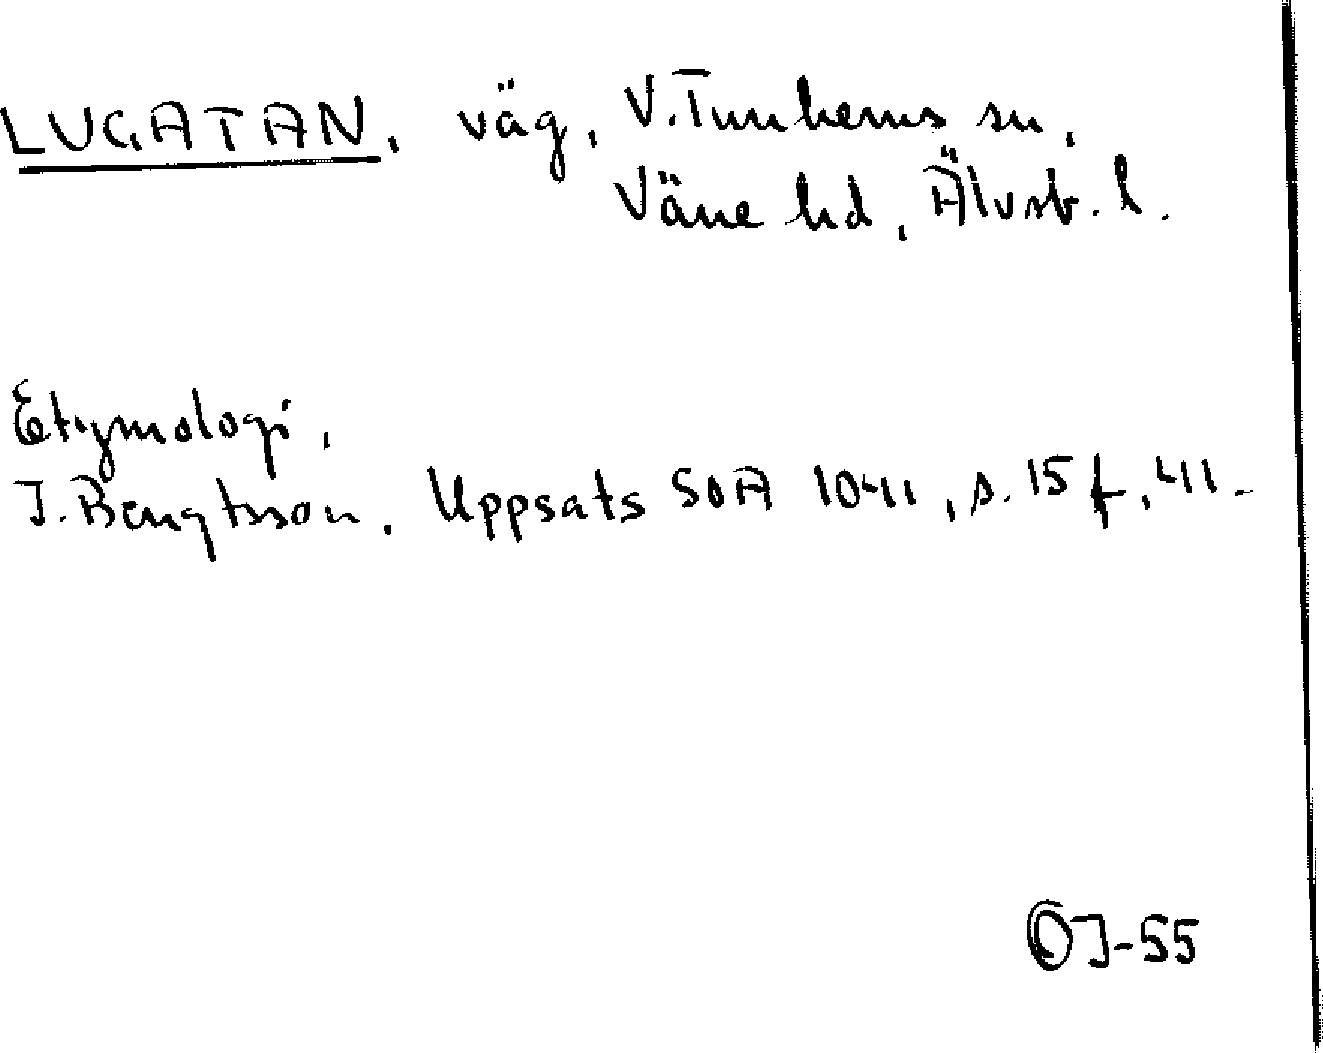 LUGATAN, väg, V. Tunhems sn,
Väne hd, Älvsb. l.
Etymologi,
J. Bengtsson, Uppsats SOA 1041, s. 15 f, 41.
OJ-55